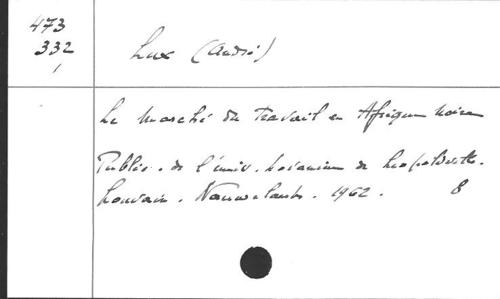 473
332
1
Lux (André)
Le Marché du Travail en Afrique noire
Public. de l'univ. Lovanium de Léopoldville.
Louvain. Nauwelaerts. 1962. 8